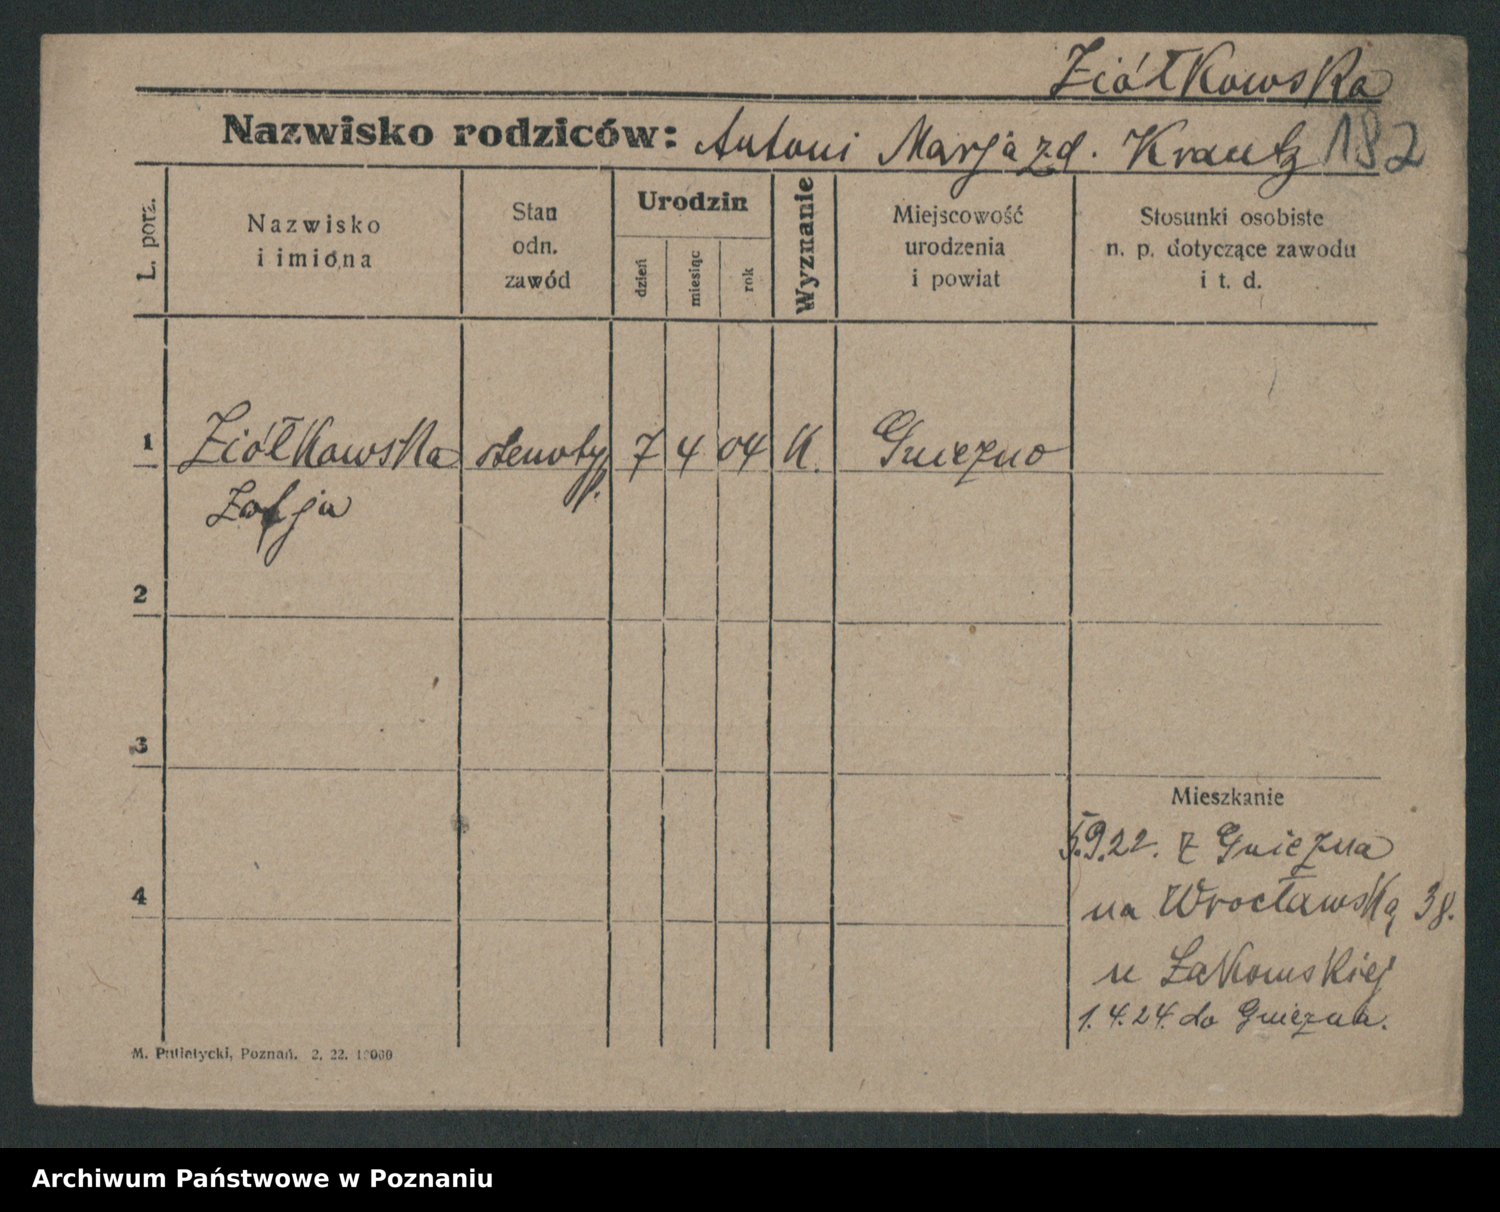 Ziółkowska
Nazwisko rodziców: Antoni Marja zd. Krautz 182
L. porz.
Nazwisko
i imiona
Stan
odn.
zawód
Urodzin
dzień
miesiąc
rok
Wyznanie
Miejscowość
urodzenia
i powiat
Stosunki osobiste
n. p. dotyczące zawodu
i t. d.
1 Ziółkowska stenotyp. 7 4 04 K. Gniezno
Zofja
2
3
Mieszkanie
5.9.22. z Gniezna
4
na Wrocławską 38.
u Żakowskiej
1.4.24. do Gniezna.
M. Putiatycki, Poznań. 2. 22. 10000
Archiwum Państwowe w Poznaniu